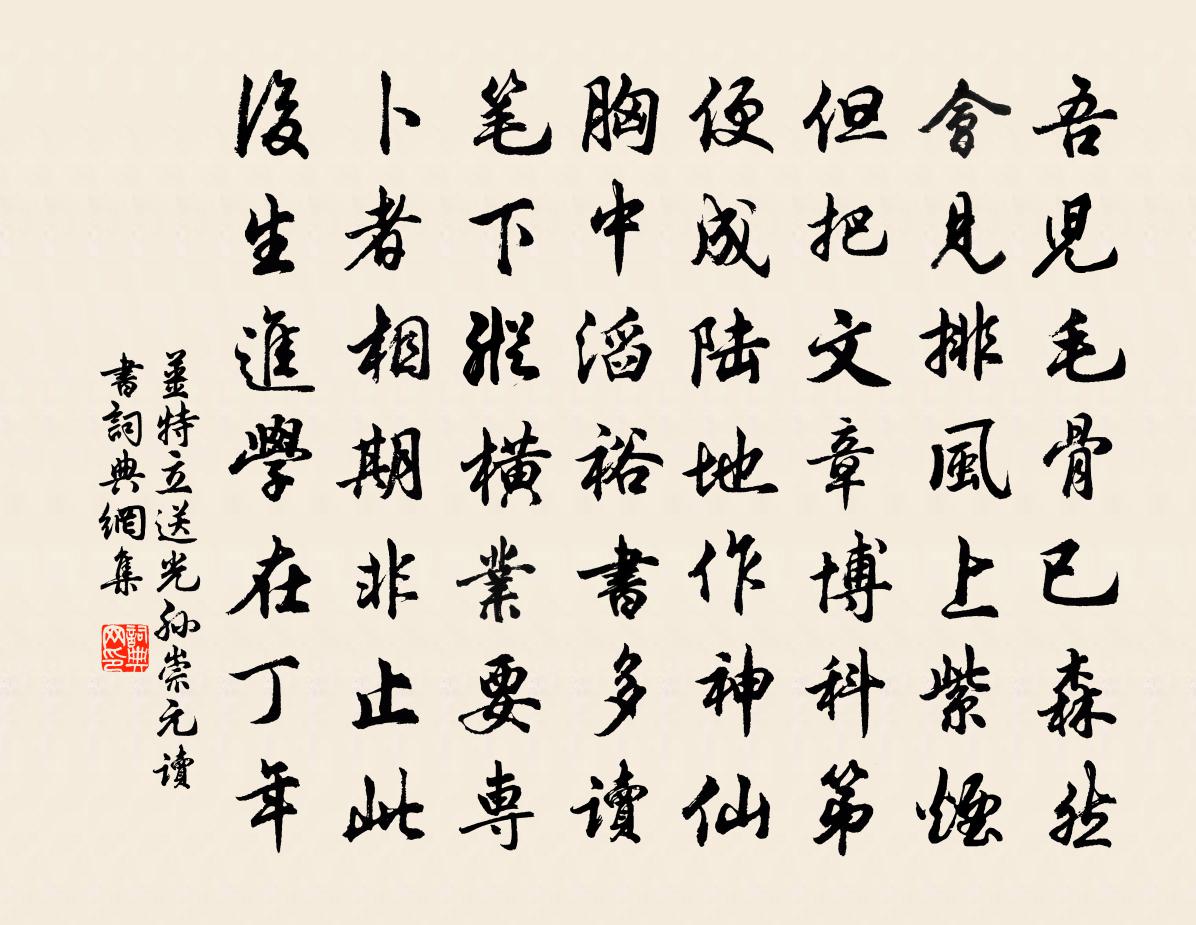 吾児毛骨已森然
會見排風上紫煙
但把文章博科第
便成陆地作神仙
胸中滔裕書多讀
笔下縱橫業要専
卜者相期非止此
後生進學在丁年
薑特立送光孫崇元讀
書詞典網集
詞典网印